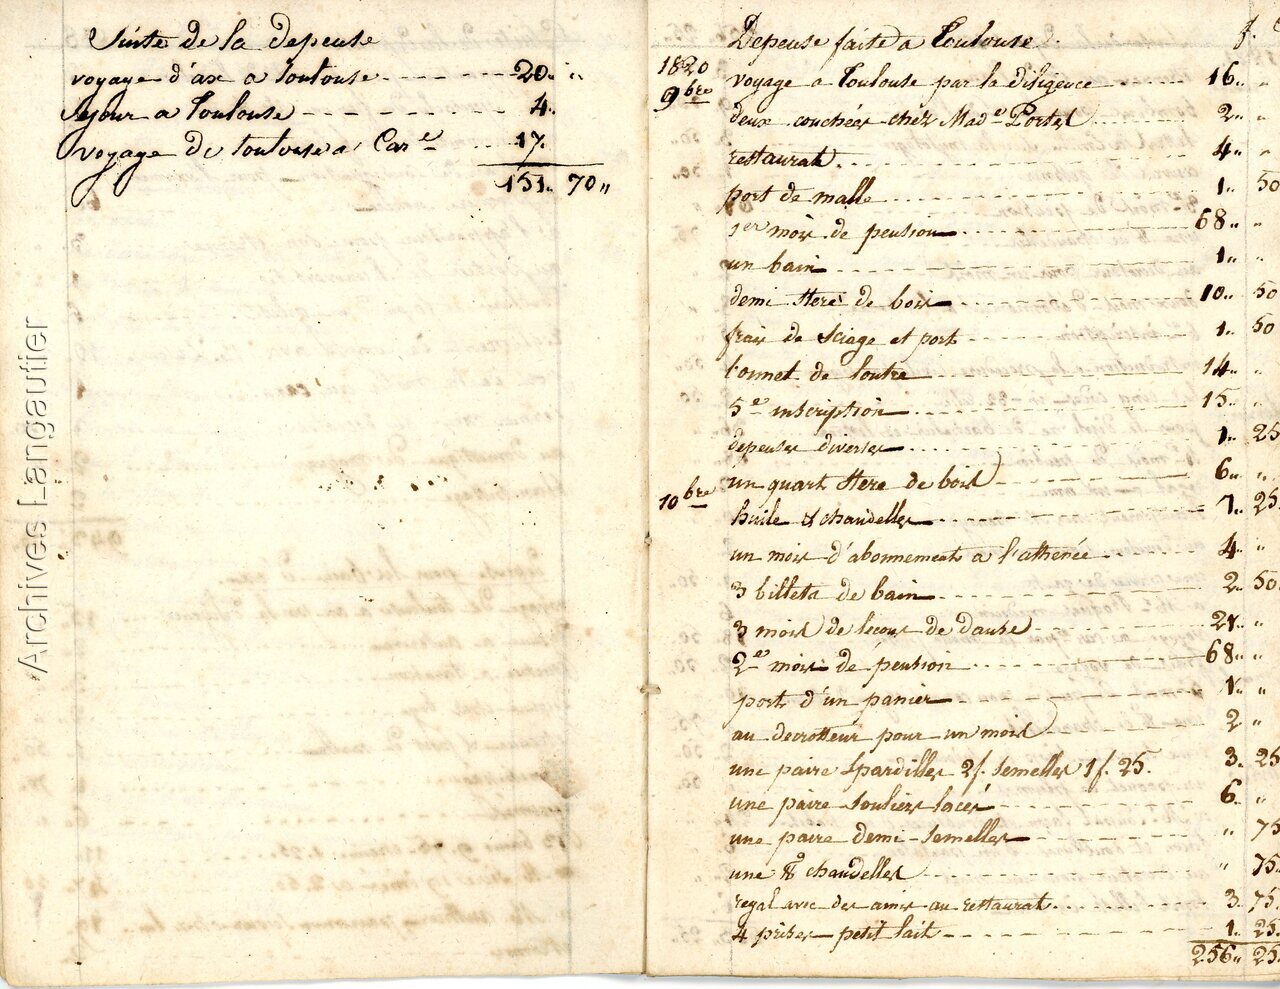 Suite de la depense
voyage d'ax a Toulouse 20.. "
Sejour a Toulouse 4.
voyage de toulouse a Car.e 17.
151.. 70 "
Archives Langautier
Depense faite a Toulouse. f.
1820
9bre
voyage a Toulouse par la diligence 16.. "
deux couchées chez Made Portes 2.. "
restaurat 4.. "
port de malle 1.. 50
1er mois de pension 68.. "
un bain 1.. "
demi stere de bois 10.. 50
frais de sciage et port 1.. 50
bonnet de loutre 14.. "
5e inscription 15.. "
depenses diverses 1.. 25
un quart stere de bois 6.. "
10bre
huile & chandelles 7.. 25
un mois d'abonnement a l'athenée 4.. "
3 billets de bain 2. 50
3 mois de lecons de danse 21.. "
2e mois de pension 68.. "
port d'un panier 1.. "
au decrotteur pour un mois 2 "
une paire spardilles 2f. semelles 1f. 25. 3. 25
une paire souliers lacés 6. "
une paire demi-semelles " 75
une chandelles " 75
regal avec des amis au restaurat 3. 75
4 prises petit lait 1. 25
256.. 25